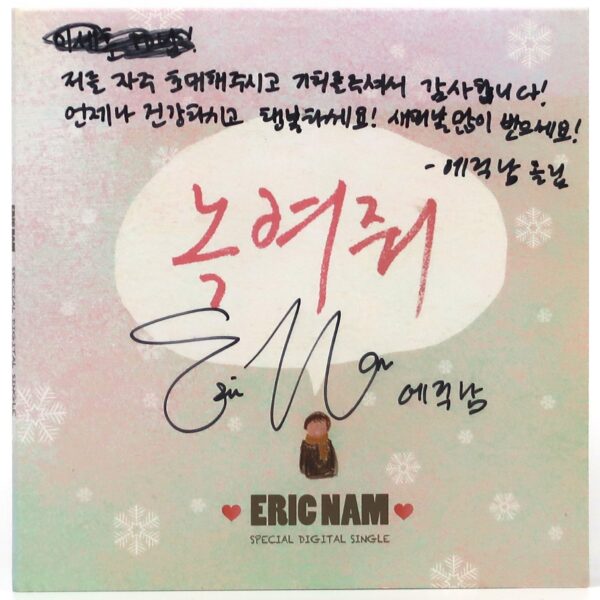 저를 자주 초대해주시고 기회를주셔서 감사합니다!
언제나 건강하시고 행복하세요! 새해복 많이 받으세요!
- 에릭남 올림
녹여줘
Eric Nam 에릭남
ERIC NAM
SPECIAL DIGITAL SINGLE
ERIC NAM SPECIAL DIGITAL SINGLE